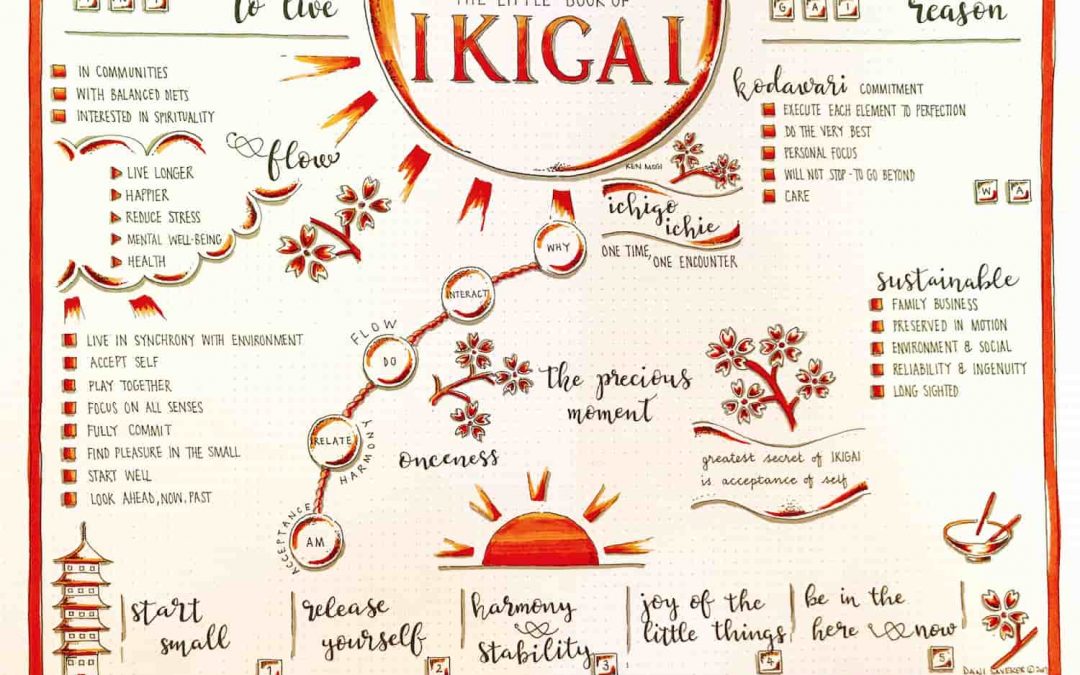 to live
THE LITTLE BOOK OF
IKIGAI
G A I
reason
IN COMMUNITIES
WITH BALANCED DIETS
INTERESTED IN SPIRITUALITY
flow
LIVE LONGER
HAPPIER
REDUCE STRESS
MENTAL WELL-BEING
HEALTH
LIVE IN SYNCHRONY WITH ENVIRONMENT
ACCEPT SELF
PLAY TOGETHER
FOCUS ON ALL SENSES
FULLY COMMIT
FIND PLEASURE IN THE SMALL
START WELL
LOOK AHEAD, NOW, PAST
KEN MOGI
ichigo
ichie
ONE TIME,
ONE ENCOUNTER
WHY
INTERACT
FLOW
DO
RELATE
HARMONY
ACCEPTANCE
AM
the precious
moment
onceness
kodawari COMMITMENT
EXECUTE EACH ELEMENT TO PERFECTION
DO THE VERY BEST
PERSONAL FOCUS
WILL NOT STOP - TO GO BEYOND
CARE
W A
sustainable
FAMILY BUSINESS
PRESERVED IN MOTION
ENVIRONMENT & SOCIAL
RELIABILITY & INGENUITY
LONG SIGHTED
greatest secret of IKIGAI
is acceptance of self
start
small
1
release
yourself
2
harmony
&
stability
3
joy of the
little things
4
be in the
here & now
5
DANI SAVEKER